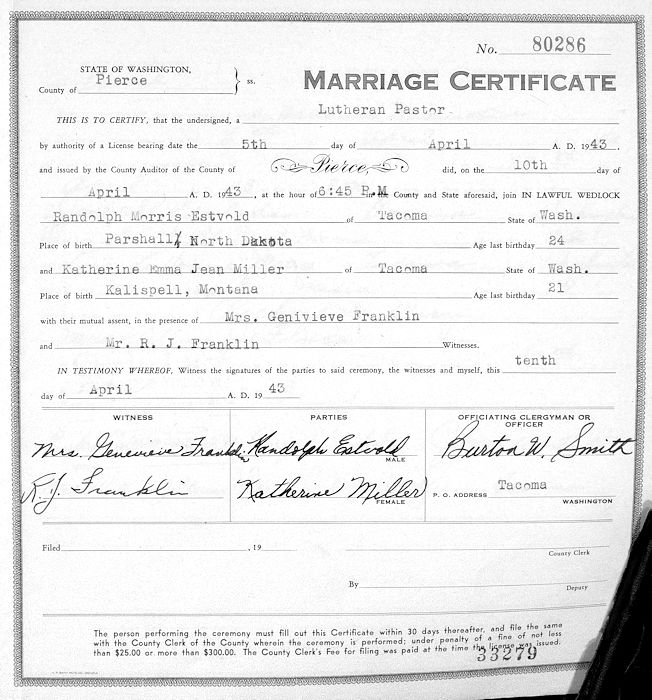 No. 80286
STATE OF WASHINGTON,
County of Pierce } ss.
MARRIAGE CERTIFICATE
THIS IS TO CERTIFY, that the undersigned, a Lutheran Pastor
by authority of a License bearing date the 5th day of April A. D. 1943,
and issued by the County Auditor of the County of Pierce, did, on the 10th day of
April A. D. 1943, at the hour of 6:45 P.M. County and State aforesaid, join IN LAWFUL WEDLOCK
Randolph Morris Estvold of Tacoma State of Wash.
Place of birth Parshall, North Dakota Age last birthday 24
and Katherine Emma Jean Miller of Tacoma State of Wash.
Place of birth Kalispell, Montana Age last birthday 21
with their mutual assent, in the presence of Mrs. Genivieve Franklin
and Mr. R. J. Franklin Witnesses.
IN TESTIMONY WHEREOF, Witness the signatures of the parties to said ceremony, the witnesses and myself, this tenth
day of April A. D. 1943
WITNESS PARTIES OFFICIATING CLERGYMAN OR OFFICER
Mrs. Genevieve Franklin Randolph Estvold Burton W. Smith
MALE
R. J. Franklin Katherine Miller P. O. ADDRESS Tacoma
FEMALE WASHINGTON
Filed , 19
County Clerk
By
Deputy
The person performing the ceremony must fill out this Certificate within 30 days thereafter, and file the same
with the County Clerk of the County wherein the ceremony is performed; under penalty of a fine of not less
than $25.00 or more than $300.00. The County Clerk's Fee for filing was paid at the time the license was issued.
33279